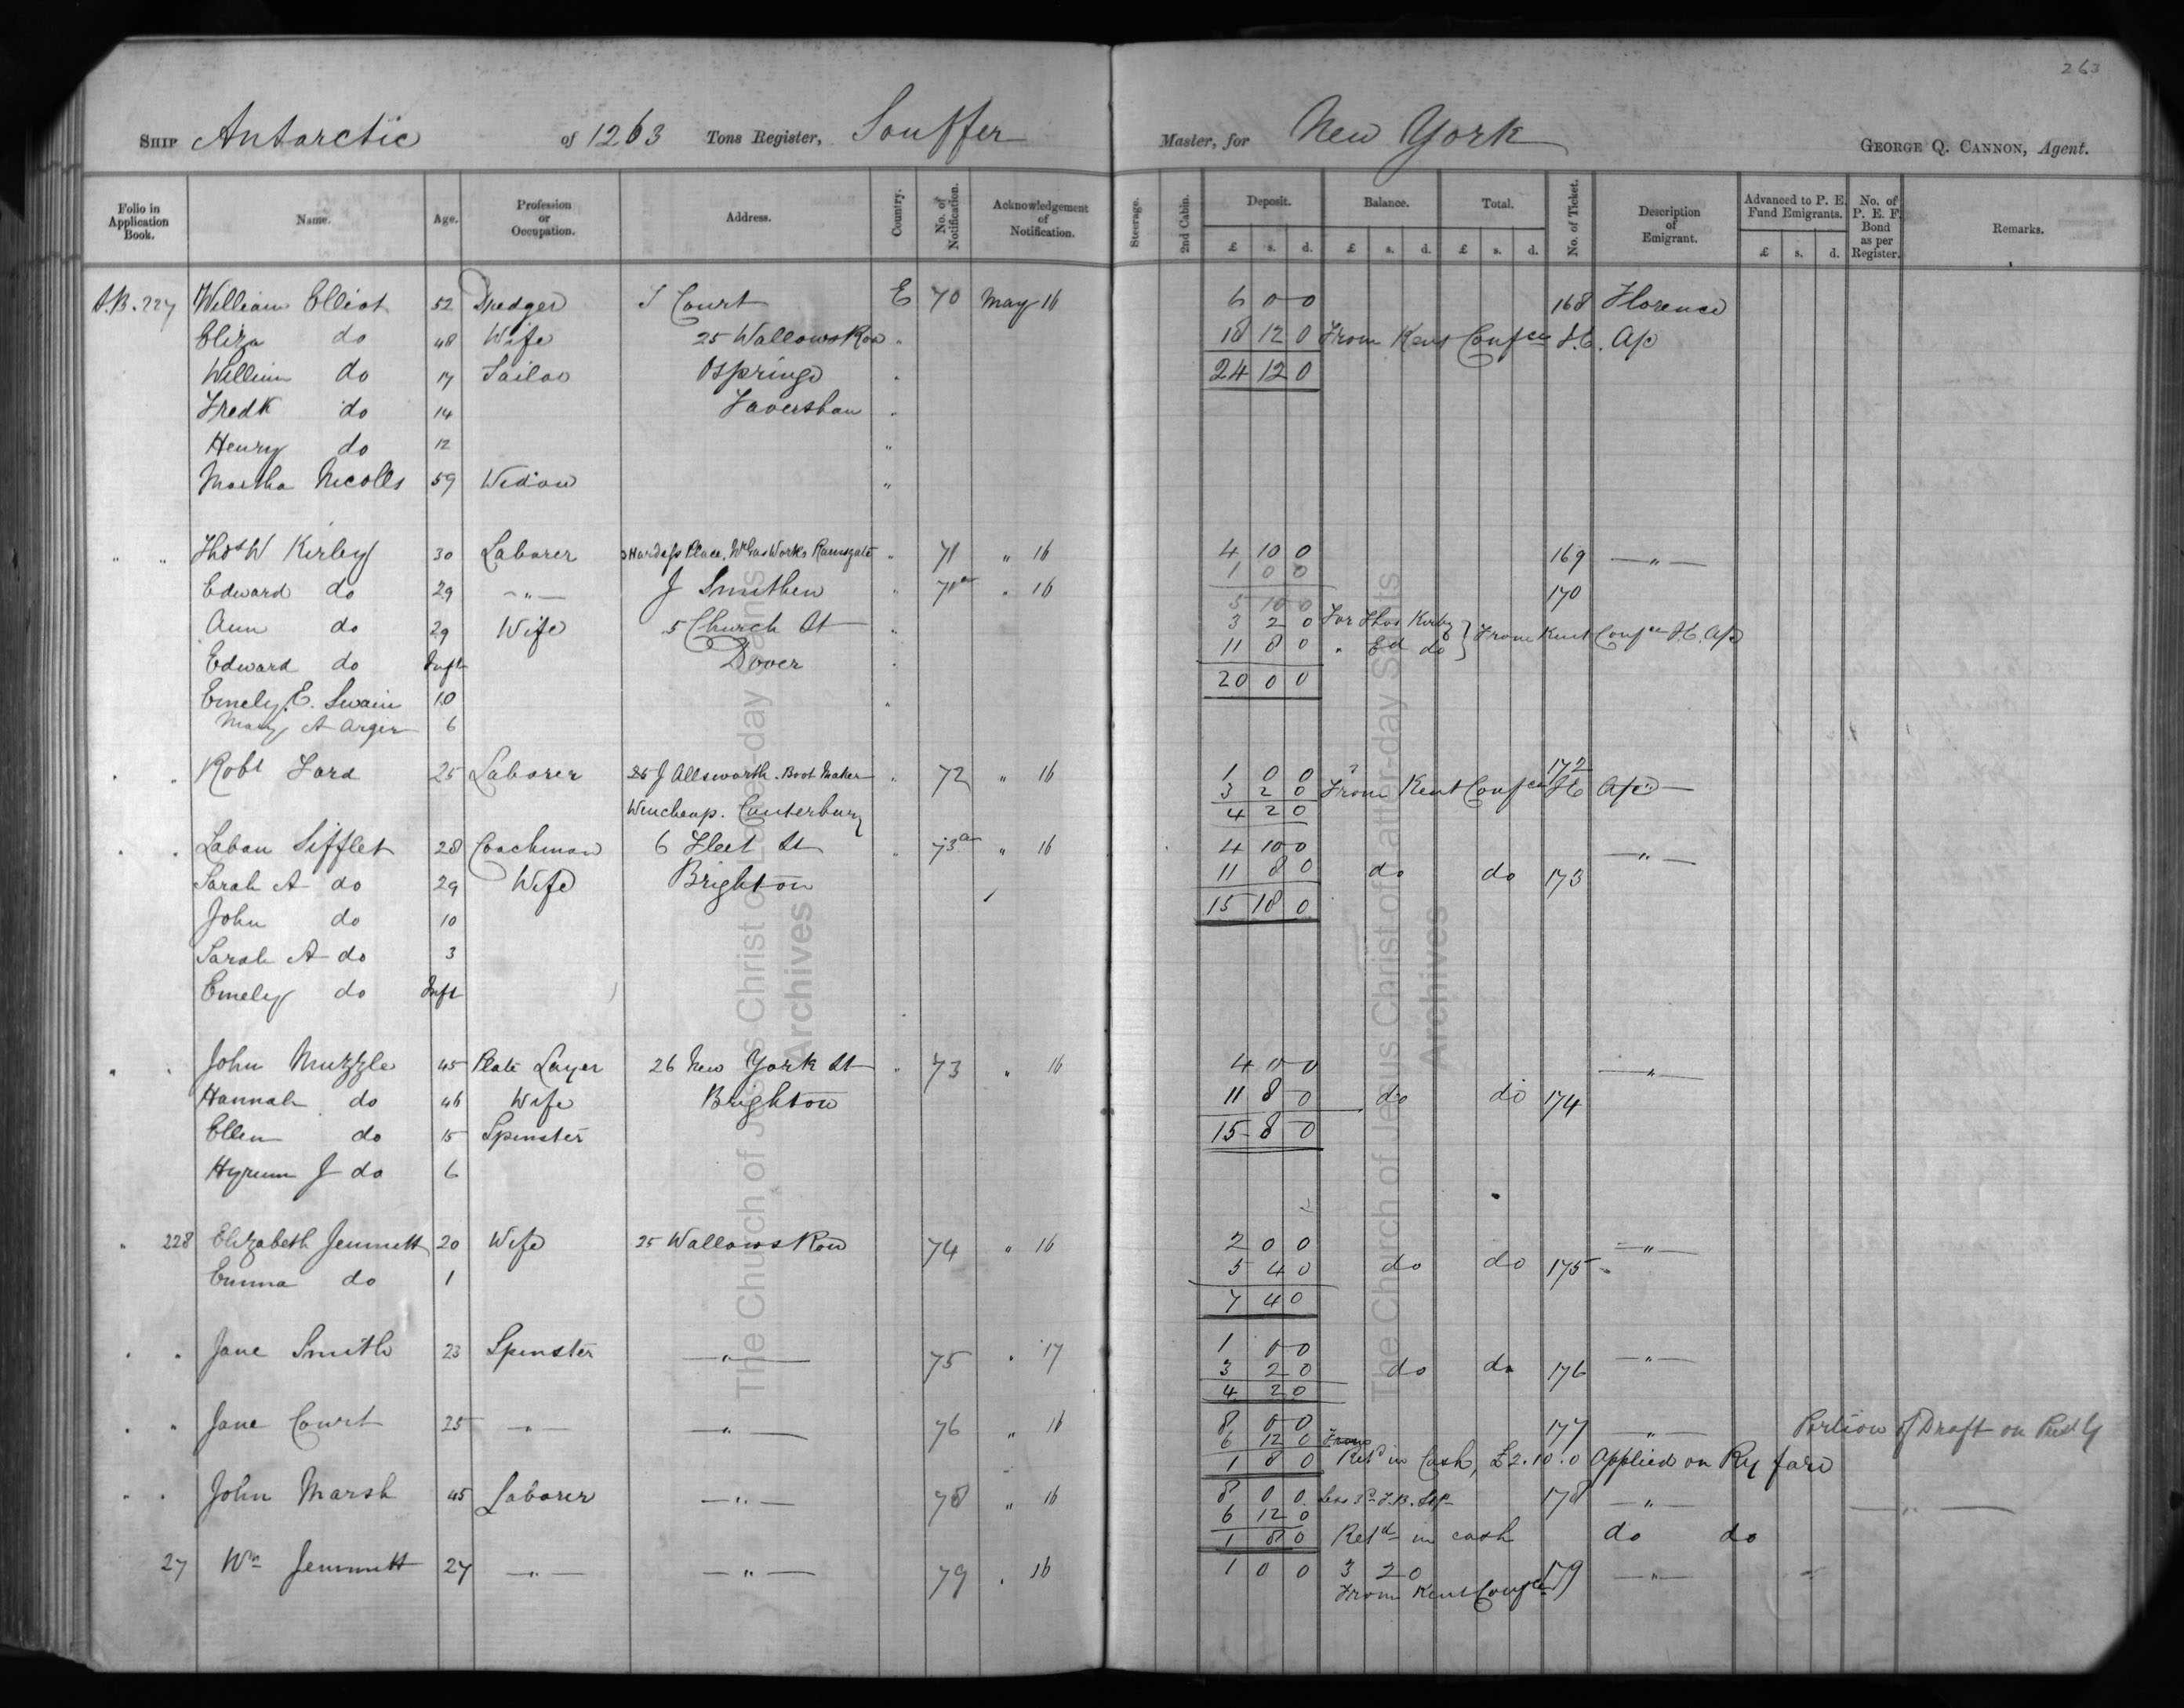 263
SHIP Antarctic of 1263 Tons Register, Souffer Master, for New York GEORGE Q. CANNON, Agent.
Folio in Application Book. Name. Age. Profession or Occupation. Address. Country. No. of Notification. Acknowledgement of Notification. Steerage. 2nd Cabin. Deposit. Balance. Total. No. of Ticket. Description of Emigrant. Advanced to P. E. Fund Emigrants. No. of P. E. F. Bond as per Register. Remarks.
£ s. d. £ s. d. £ s. d. £ s. d.
A.B. 227 William Elliot 52 Dredger J Court E 70 May 16 6 0 0 168 Florence
Eliza do 48 Wife 25 Wallows Row " 18 12 0 From Kent Confce J.C. A/c
William do 17 Sailor Ospringe " 24 12 0
Fredk do 14 Faversham "
Henry do 12 "
Martha Nicolls 59 Widow "
" " Thos W Kirby 30 Laborer Place, Gas Works Ramsgate " 71 " 16 4 10 0 169 — " —
1 0 0
Edward do 29 — " — J Smithen " 71a " 16 5 10 0 170
Ann do 29 Wife 5 Church St " 3 2 0 For Thos Kirby } From Kent Confce J.C. A/c
Edward do Inft Dover " 11 8 0 " Ed do
20 0 0
Emely E. Swain 10 "
Mary A Argir 6
" " Robt Ford 25 Laborer 26 J Allsworth. Boot Maker " 72 " 16 1 0 0 172
Wincheap. Canterbury 3 2 0 From Kent Confce J C A/c —
4 2 0
" " Laban Sifflet 28 Coachman 6 Fleet St " 73a " 16 4 10 0 — " —
Sarah A do 29 Wife Brighton 11 8 0 do do 173
John do 10 15 18 0
Sarah A do 3
Emely do Inft
" " John Muzzle 45 Plate Layer 26 New York St " 73 " 16 4 0 0 — " —
Hannah do 46 Wife Brighton 11 8 0 do do 174
Ellen do 15 Spinster 15 8 0
Hyrum J do 6
" 228 Elizabeth Jemmett 20 Wife 25 Wallows Row 74 " 16 2 0 0 — " —
Emma do 1 5 4 0 do do 175
7 4 0
" " Jane Smith 23 Spinster — " — 75 " 17 1 0 0 — " —
3 2 0 do do 176
4 2 0
" " Jane Court 25 — " — — " — 76 " 16 8 0 0 177 — " — Portion of Draft on
6 12 0 From
1 8 0 Retd in Cash, £2.10.0 Applied on Ry fare
" " John Marsh 45 Laborer — " — 78 " 16 8 0 0 178 — " — — " —
6 12 0
1 8 0 Retd in cash do do
27 Wm Jemmett 27 — " — — " — 79 " 16 1 0 0 3 2 0 179 — " —
From Kent Confce
The Church of Jesus Christ of Latter-day Saints
Archives
The Church of Jesus Christ of Latter-day Saints
Archives